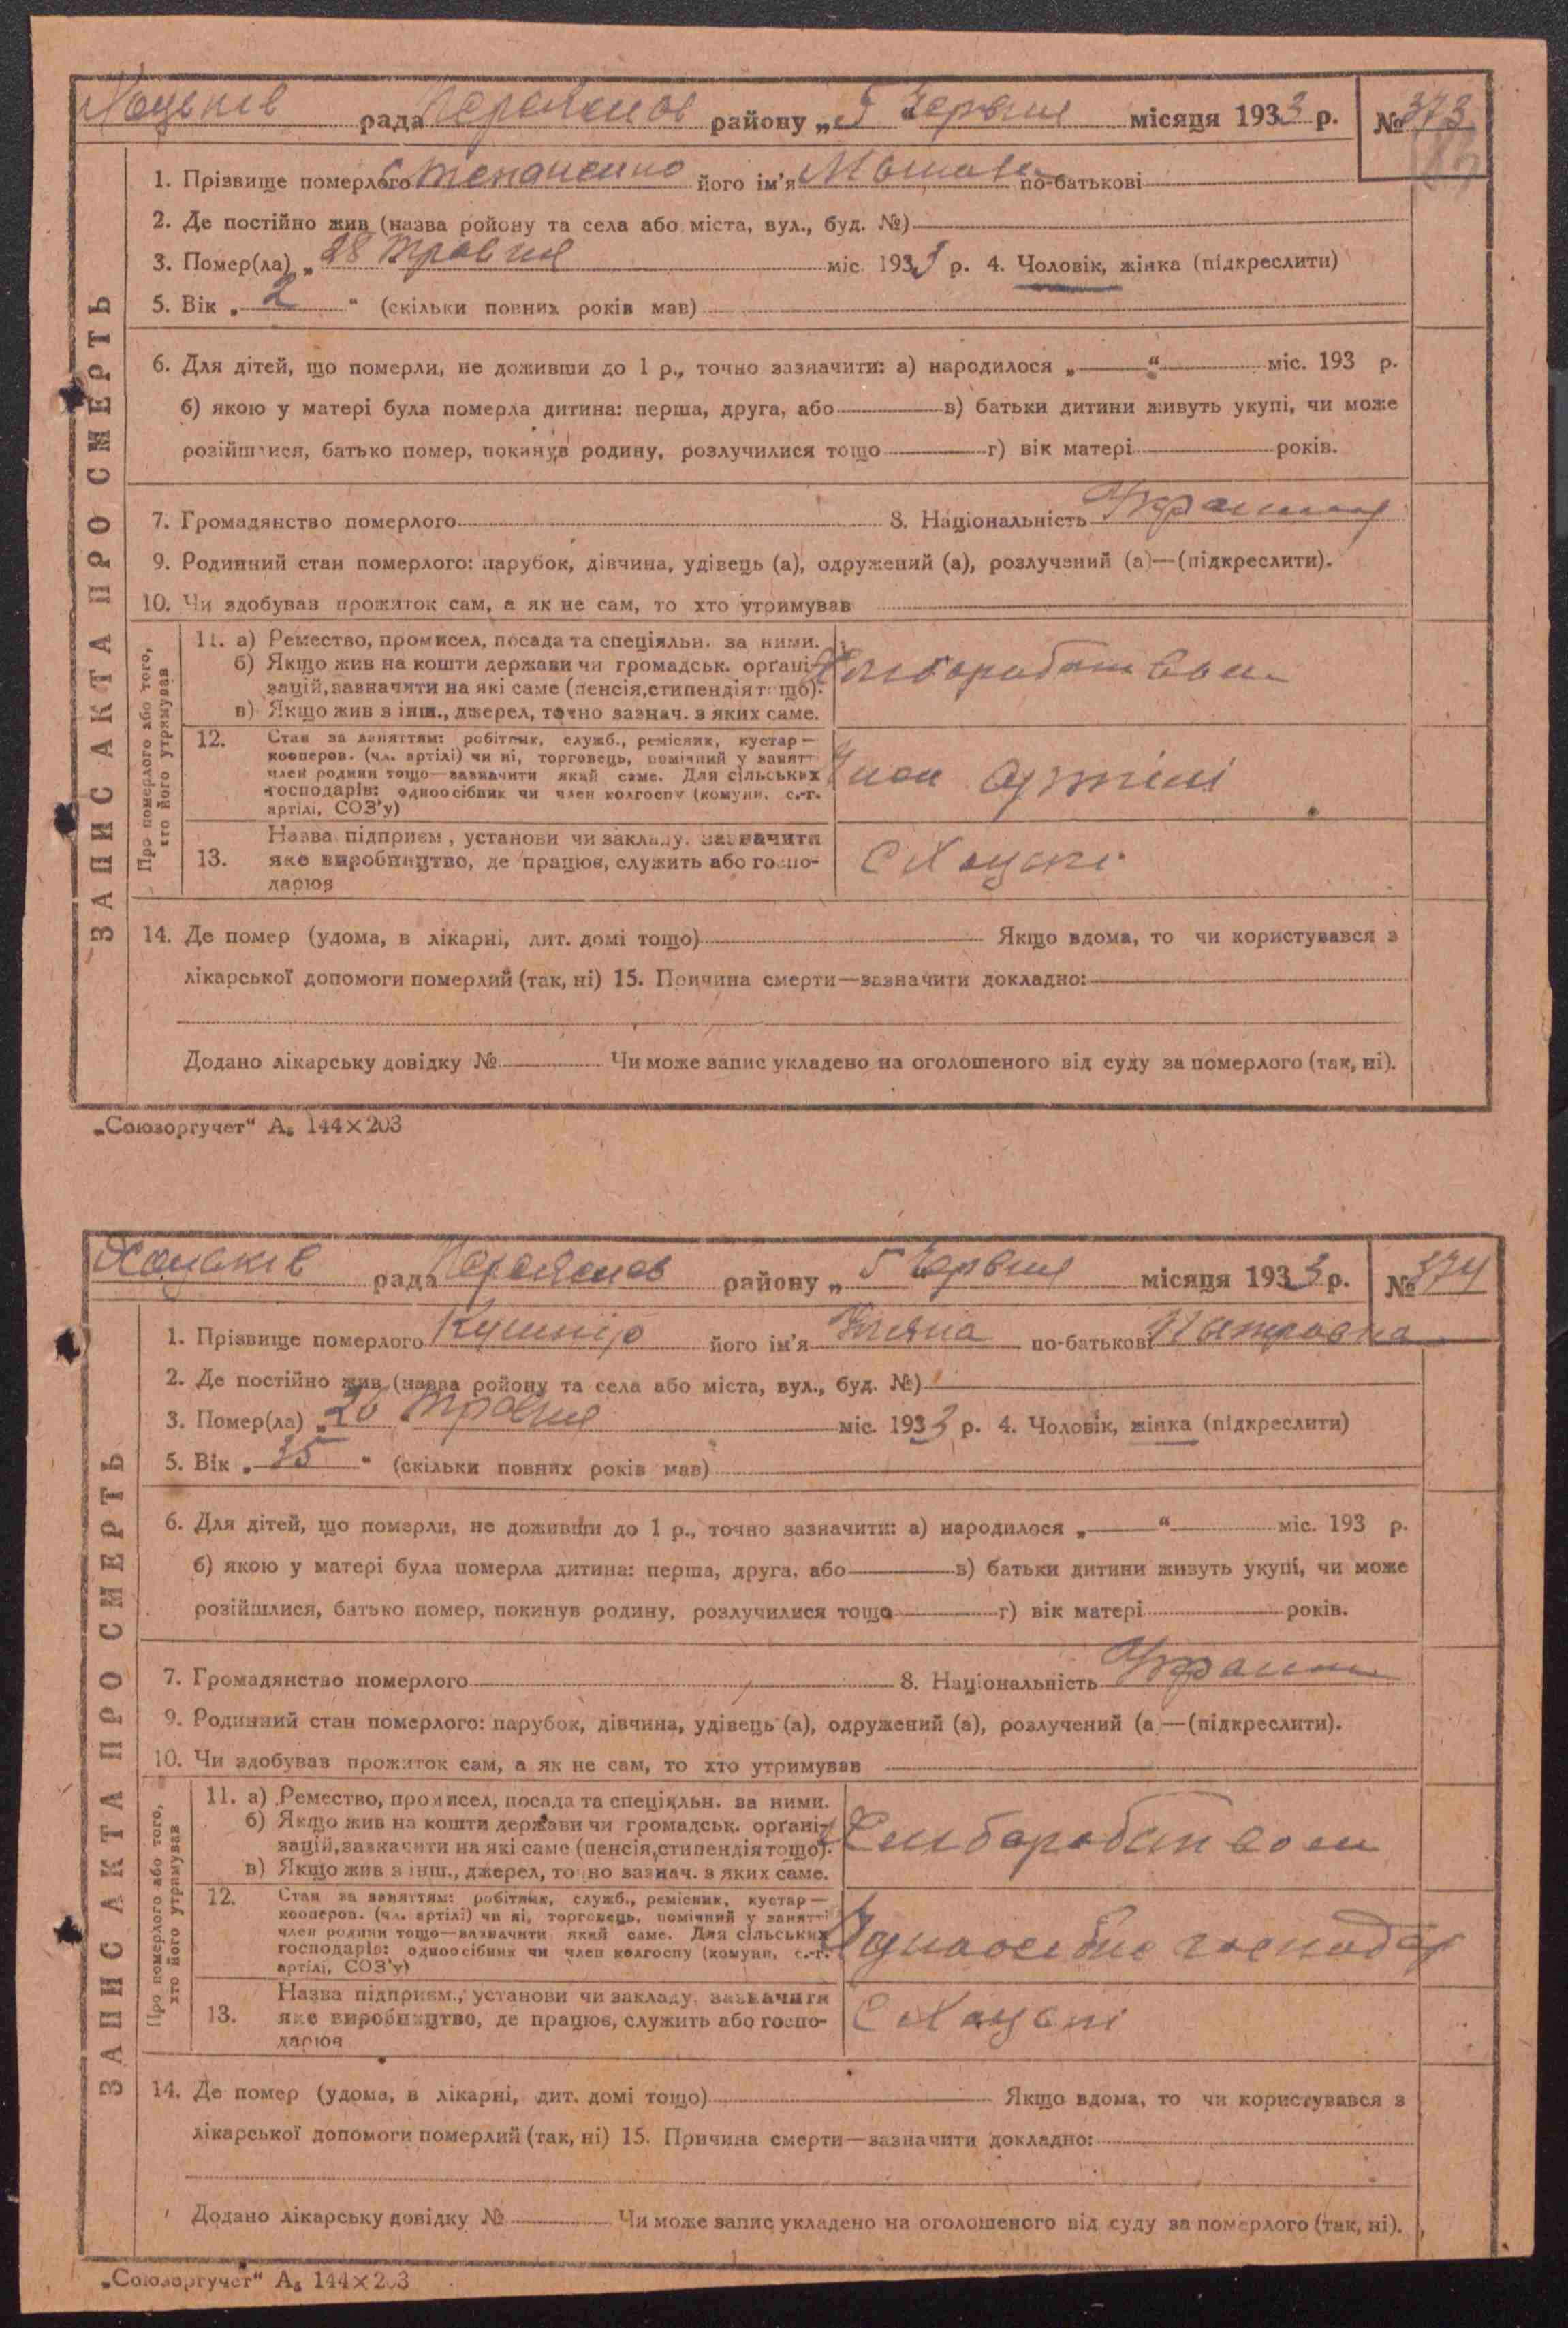 Хоцьків рада Переяслов району „5“ Червня місяця 1933 р. № 373
1. Прізвище померлого Степаненко його ім'я по-батькові
2. Де постійно жив (назва ройону та села або міста, вул., буд. №)
3. Помер(ла) „28 Травня міс. 1933 р. 4. Чоловік, жінка (підкреслити)
5. Вік „ 2 “ (скільки повних років мав)
6. Для дітей, що померли, не доживши до 1 р., точно зазначити: а) народилося „ “ міс. 193 р.
б) якою у матері була померла дитина: перша, друга, або в) батьки дитини живуть укупі, чи може
розійшлися, батько помер, покинув родину, розлучилися тощо г) вік матері років.
7. Громадянство померлого 8. Національність
9. Родинний стан померлого: парубок, дівчина, удівець (а), одружений (а), розлучений (а)—(підкреслити).
10. Чи здобував прожиток сам, а як не сам, то хто утримував
ЗАПИС АКТА ПРО СМЕРТЬ
Про померлого або того,
хто його утримував
11. а) Ремество, промисел, посада та спеціяльн. за ними.
б) Якщо жив на кошти держави чи громадськ. орґані-
зацій, зазначити на які саме (пенсія, стипендія тощо).
в) Якщо жив з інш., джерел, точно зазнач. з яких саме.
Хліборобством
12. Стан за заняттям: робітник, служб., ремісник, кустар—
кооперов. (чл. артілі) чи ні, торговець, помічний у занятт
член родини тощо—зазначити який саме. Для сільських
господарів: одноосібник чи член колгоспу (комуни, с.-г.
артілі, СОЗ'у)
Член артілі
13. Назва підприєм, установи чи закладу, зазначити
яке виробництво, де працює, служить або госпо-
дарює
С Хоцьки
14. Де помер (удома, в лікарні, дит. домі тощо) Якщо вдома, то чи користувався з
лікарської допомоги померлий (так, ні) 15. Причина смерти—зазначити докладно:
Додано лікарську довідку № Чи може запис укладено на оголошеного від суду за померлого (так, ні).
„Союзоргучет“ А₅ 144×203
Хоцьків рада Переяслов району „ 5 Червня місяця 1933 р. № 374
1. Прізвище померлого Кушнір його ім'я Уляна по-батькові Петровна
2. Де постійно жив (назва ройону та села або міста, вул., буд. №)
3. Помер(ла) „ Травня міс. 1933 р. 4. Чоловік, жінка (підкреслити)
5. Вік „ 35 “ (скільки повних років мав)
6. Для дітей, що померли, не доживши до 1 р., точно зазначити: а) народилося „ “ міс. 193 р.
б) якою у матері була померла дитина: перша, друга, або в) батьки дитини живуть укупі, чи може
розійшлися, батько помер, покинув родину, розлучилися тощо г) вік матері років.
7. Громадянство померлого 8. Національність
9. Родинний стан померлого: парубок, дівчина, удівець (а), одружений (а), розлучений (а—(підкреслити).
10. Чи здобував прожиток сам, а як не сам, то хто утримував
ЗАПИС АКТА ПРО СМЕРТЬ
Про померлого або того,
хто його утримував
11. а) Ремество, промисел, посада та спеціяльн. за ними.
б) Якщо жив на кошти держави чи громадськ. орґані-
зацій, зазначити на які саме (пенсія, стипендія тощо).
в) Якщо жив з інш., джерел, точно зазнач. з яких саме.
Хліборобством
12. Стан за заняттям: робітник, служб., ремісник, кустар—
кооперов. (чл. артілі) чи ні, торговець, помічний у занятті
член родини тощо—зазначити який саме. Для сільських
господарів: одноосібник чи член колгоспу (комуни, с.-г.
артілі, СОЗ'у)
13. Назва підприєм., установи чи закладу, зазначити
яке виробництво, де працює, служить або госпо-
дарює
С Хоцьки
14. Де помер (удома, в лікарні, дит. домі тощо) Якщо вдома, то чи користувався з
лікарської допомоги померлий (так, ні) 15. Причина смерти—зазначити докладно:
Додано лікарську довідку № Чи може запис укладено на оголошеного від суду за померлого (так, ні).
„Союзоргучет“ А₅ 144×203